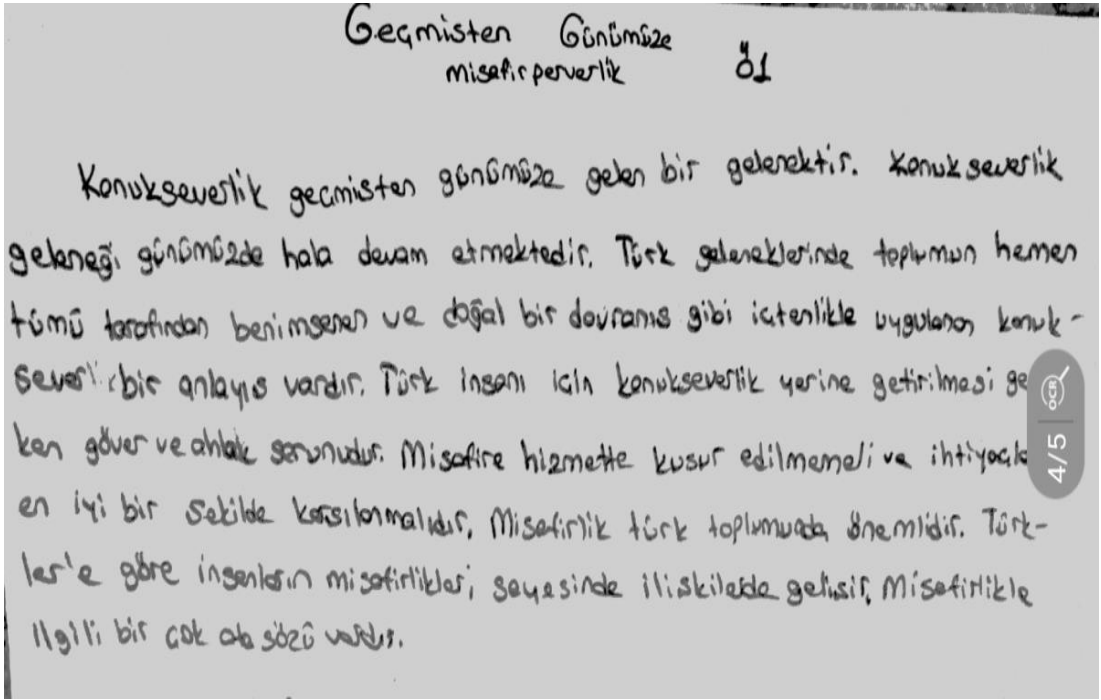 Geçmisten Günümüze
misafirperverlik
Ö1
Konukseverlik geçmisten günümüze gelen bir gelenektir. Konukseverlik
geleneği günümüzde hala devam etmektedir. Türk geleneklerinde toplumun hemen
tümü tarafından benimsenen ve doğal bir davranıs gibi içtenlikle uygulanan konuk-
bir anlayıs vardır. Türk insanı icin konukseverlik yerine getirilmesi ge
ken ve ahlak sorunudur. Misafire hizmette kusur edilmemeli ve
en iyi bir sekilde karsılanmalıdır. Misafirlik türk toplumunda önemlidir. Türk-
ler'e göre insanların misafirlikleri, sayesinde iliskileride gelisir. Misafirlikle
ilgili bir çok ata sözü vardır.
4/5 OCR